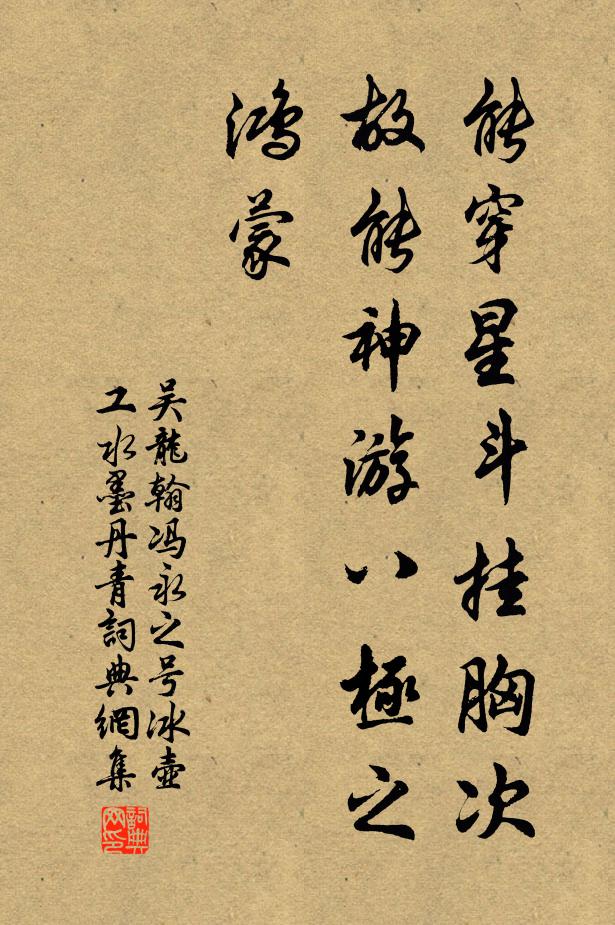 能穿星斗挂胸次
故能神游八極之
鸿蒙
吴龍翰冯永之号冰壶
工水墨丹青詞典網集
詞典网印